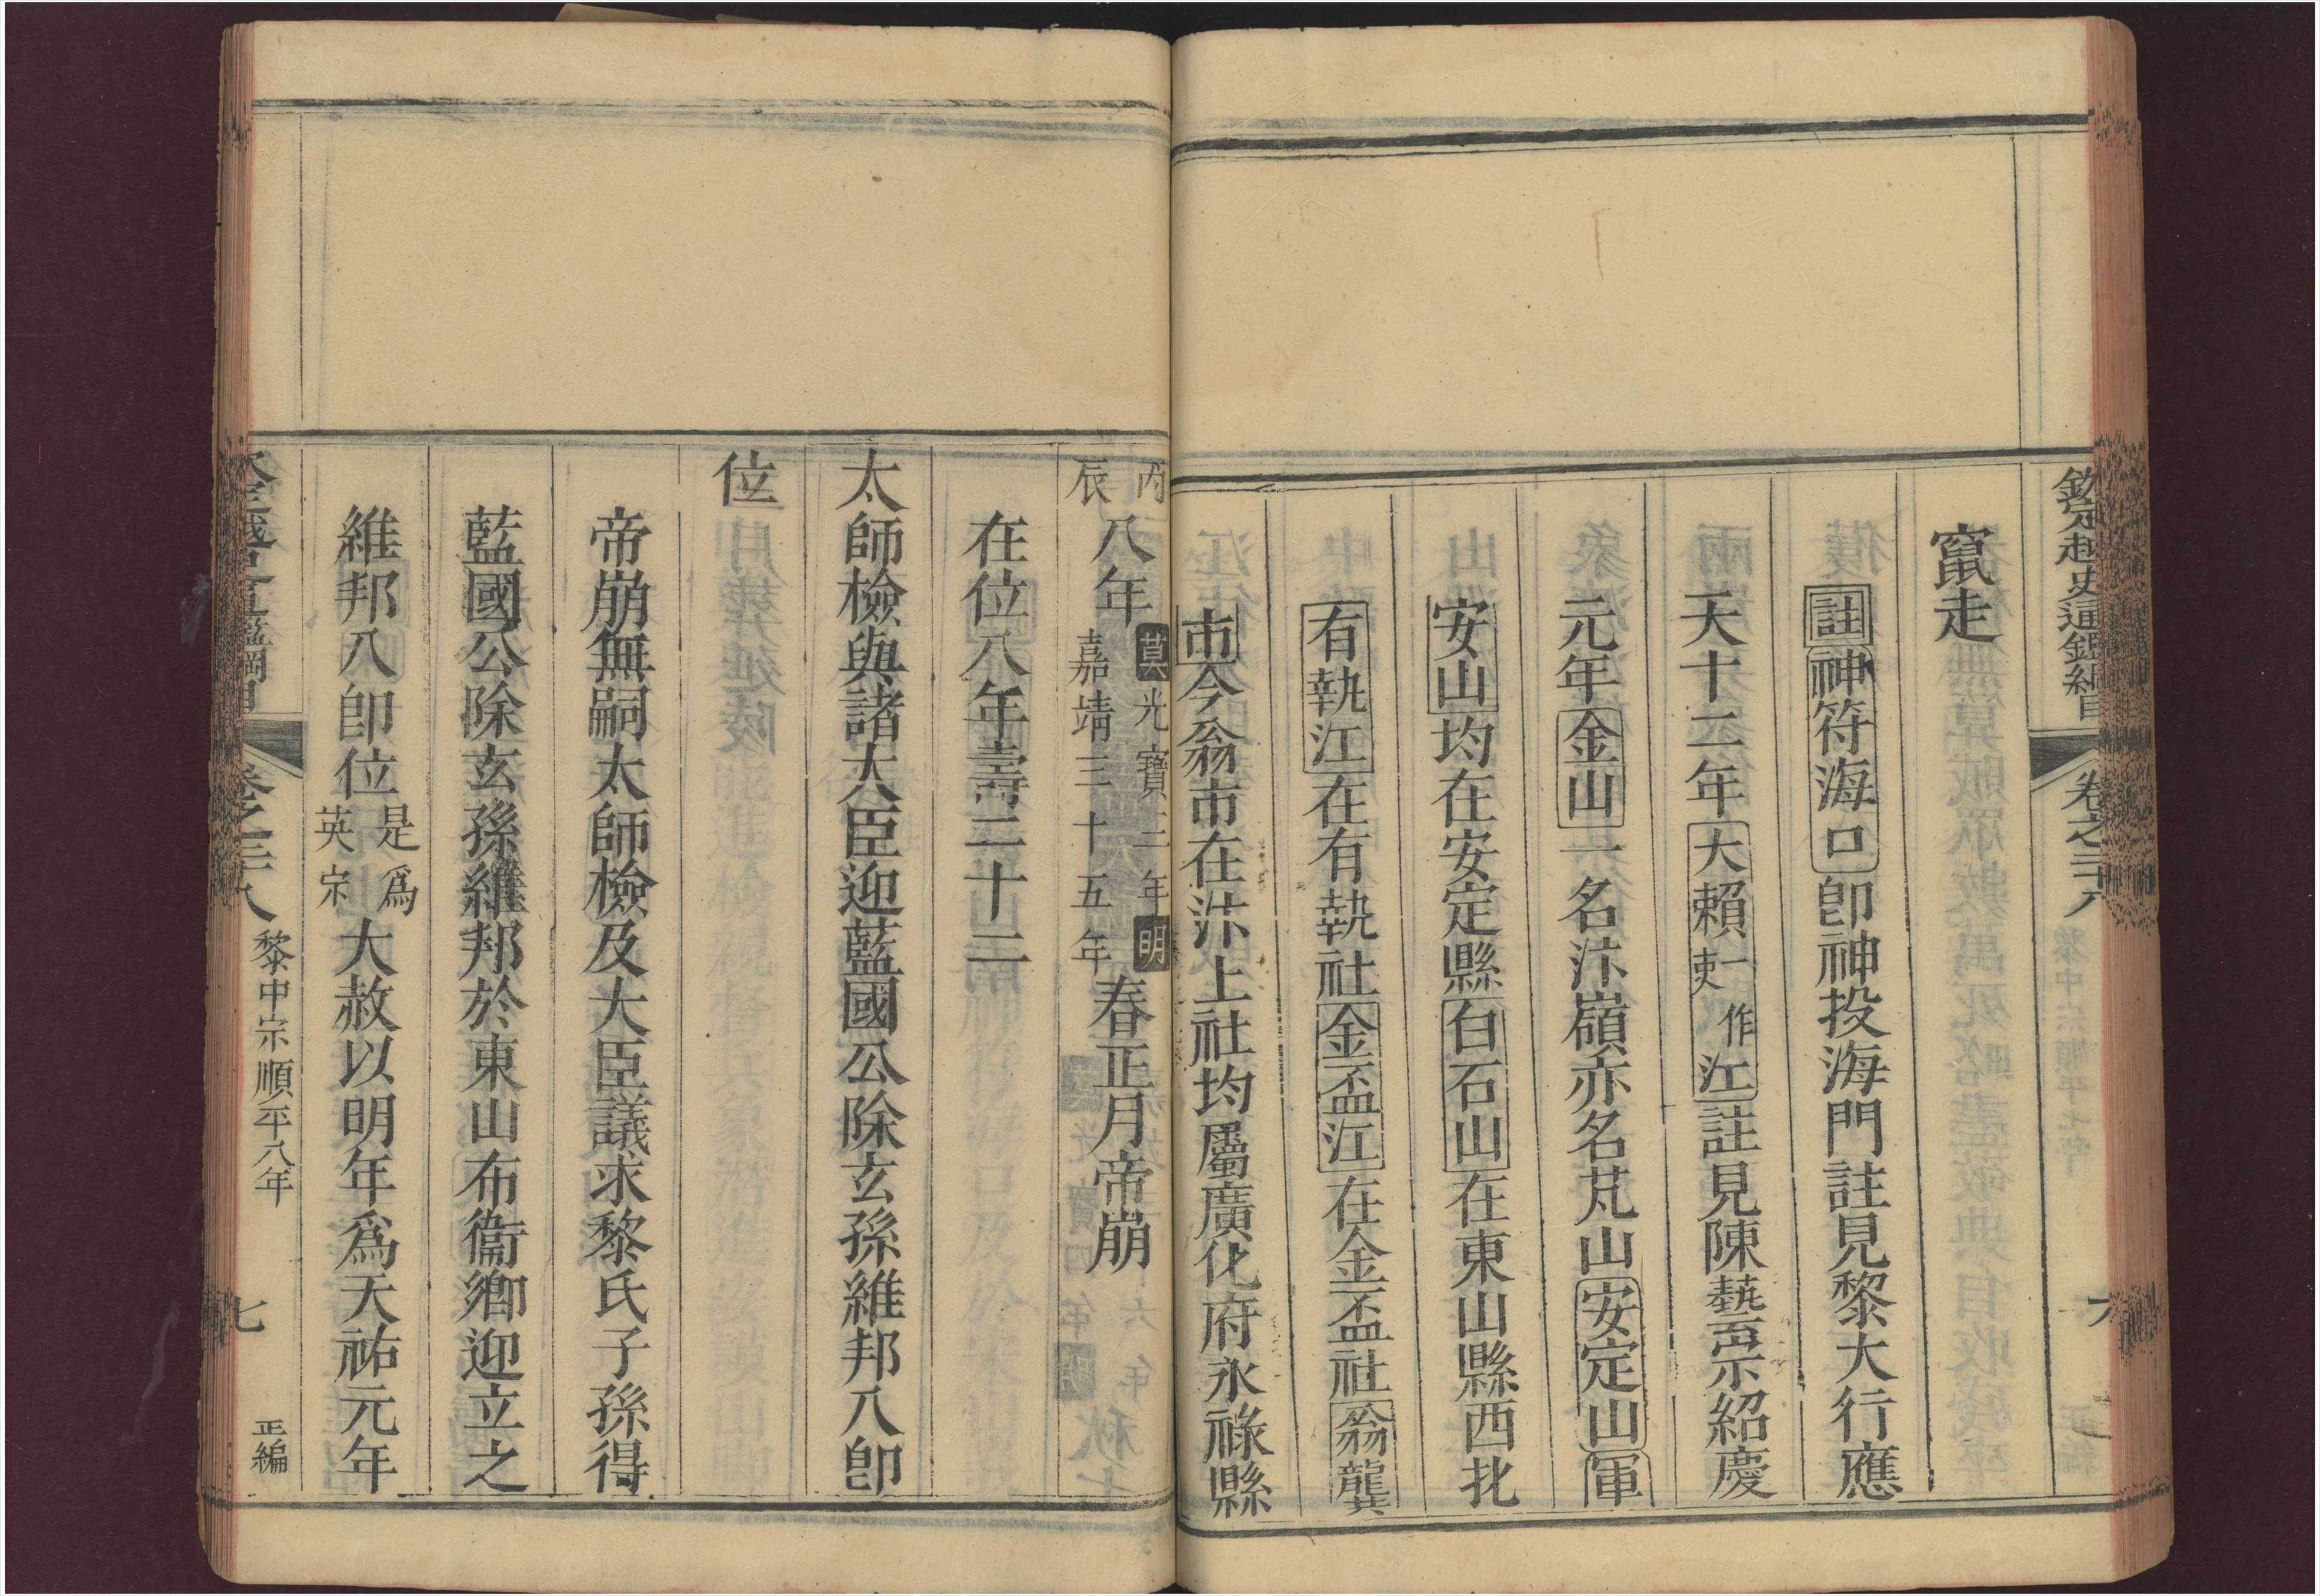 欽定越史通鑑綱目 卷之二十八 六
竄走
註神符海口卽神投海門註見黎大行應
天十二年大賴一作吏江註見陳藝宗紹慶
元年金山一名汴嶺亦名芃山安定山軍
安山均在安定縣白石山在東山縣西北
有執江在有執社金盃江在金盃社翁龔
市今翁市在汴上社均屬廣化府永祿縣
丙辰八年莫光寶三年明嘉靖三十五年春正月帝崩
在位八年壽二十二
太師檢與諸大臣迎藍國公除玄孫維邦入卽
位
帝崩無嗣太師檢及大臣議求黎氏子孫得
藍國公除玄孫維邦於東山布衞鄉迎立之
維邦入卽位是爲英宗大赦以明年爲天祐元年
欽定越史通鑑綱目 卷之二十八 黎中宗順平八年 七 正編